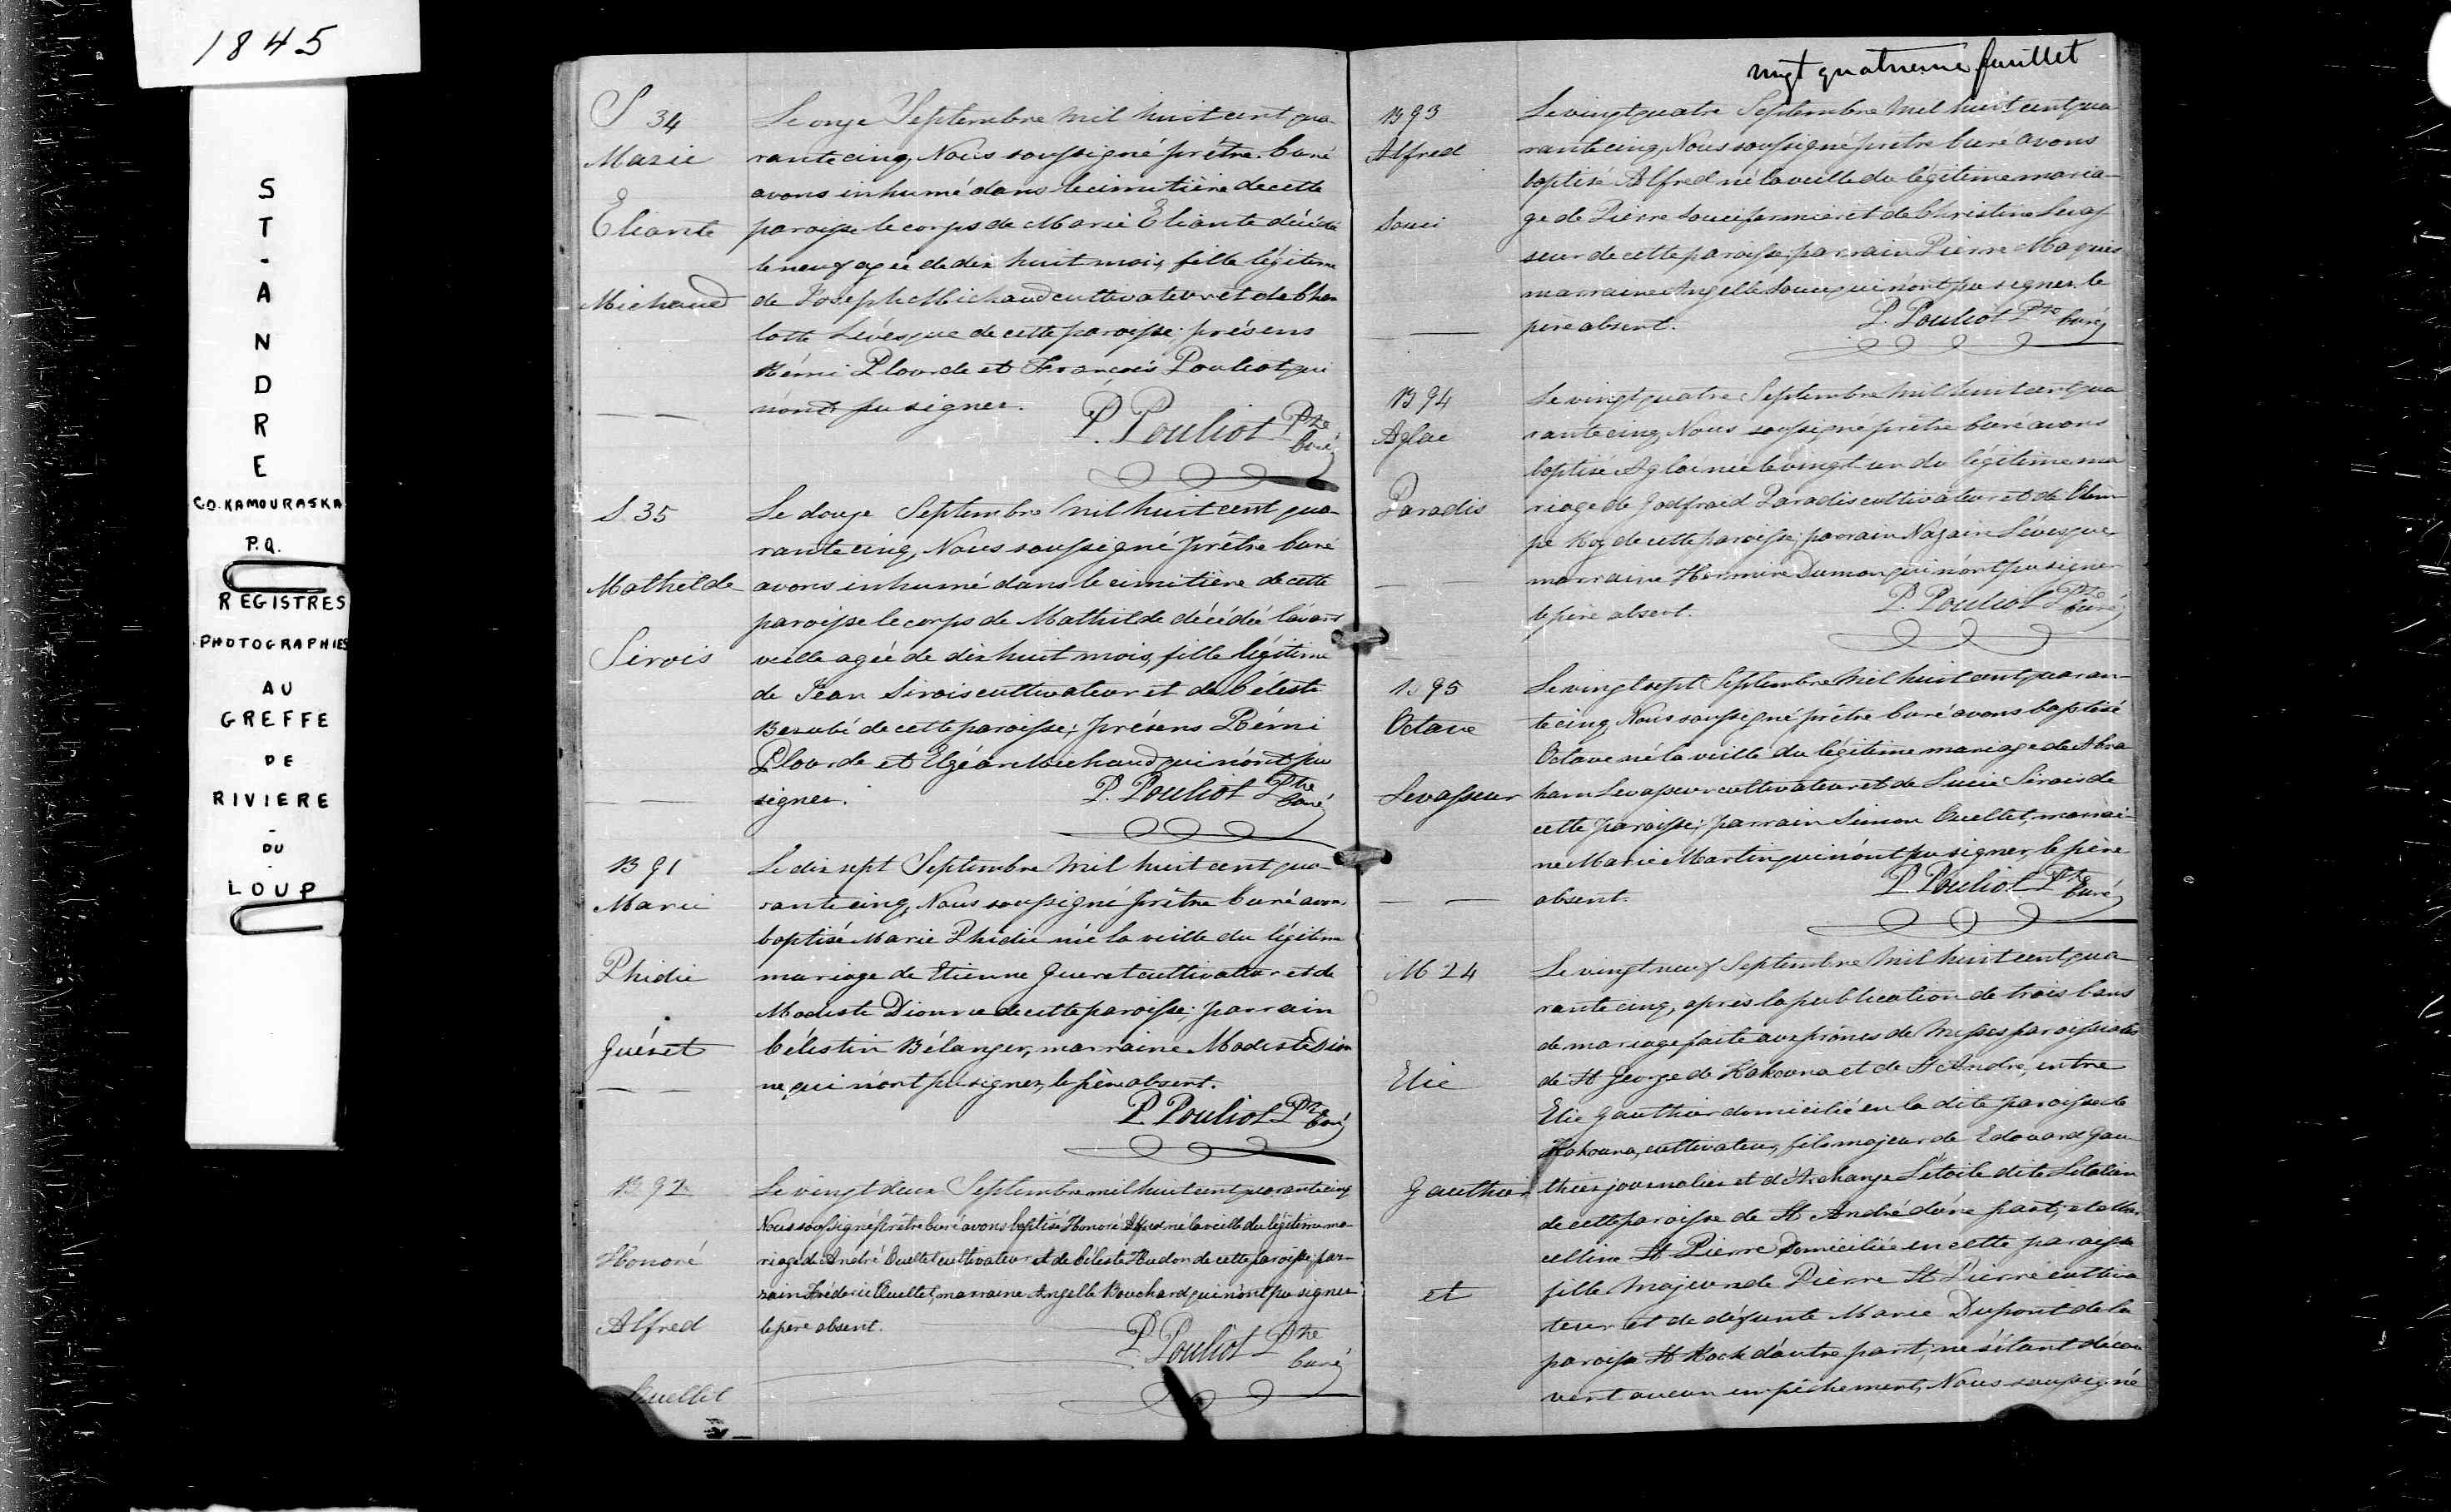 1845
ST-ANDRE
CO. KAMOURASKA
P.Q.
REGISTRES
PHOTOGRAPHIES
AU
GREFFE
DE
RIVIERE
-
DU
LOUP
S 34
Marie
Eliante
Michaud
Le onze Septembre mil huit cent qua-
rante cinq, Nous soussigné prêtre Curé
avons inhumé dans le cimitière de cette
paroisse le corps de Marie Eliante décédée
le neuf agée de dix huit mois, fille légitime
de Joseph Michaud cultivateur et de Char
lotte Lévesque de cette paroisse; présens
Rémi Plourde et François Pouliot qui
n'ont pu signer.
P. Pouliot Ptre
Curé
S. 35
Mathilde
Sirois
Le douze Septembre mil huit cent qua-
rante cinq, Nous soussigné prêtre Curé
avons inhumé dans le cimitière de cette
paroisse le corps de Mathilde décédée l'avant
veille agée de dix huit mois, fille légitime
de Jean Sirois cultivateur et de Céleste
Berubé de cette paroisse; présens Rémi
Plourde et Elzéar Michaud qui n'ont pu
signer.
P. Pouliot Ptre
Curé
B 91
Marie
Phidie
Guéret
Le dix sept Septembre mil huit cent qua-
rante cinq, Nous soussigné prêtre Curé avons
baptisé Marie Phidie née la veille du légitime
mariage de Etienne Gueret cultivateur et de
Modeste Dionne de cette paroisse; parrain
Célestin Bélanger, marraine Modeste Dion
ne qui n'ont pu signer, le père absent.
P. Pouliot Ptre
Curé
B 92
Honoré
Alfred
Ouellet
Le vingt deux Septembre mil huit cent quarante cinq
Nous soussigné prêtre Curé avons baptisé Honoré Alfred né la veille du légitime ma-
riage de André Ouellet cultivateur et de Céleste Hudon de cette paroisse; par-
rain Fréderic Ouellet, marraine Angelle Bouchard qui n'ont pu signer
le pere absent.
P. Pouliot Ptre
Curé
vingt quatrieme feuillet
B 93
Alfred
Souci
Le vingt quatre Septembre mil huit cent qua
rante cinq, Nous soussigné prêtre Curé avons
baptisé Alfred né la veille du légitime maria-
ge de Pierre Souci fermier et de Christine Levas
seur de cette paroisse; parrain Pierre Moquis
marraine Angelle Souci qui n'ont pu signer, le
père absent.
P. Pouliot Ptre Curé
B 94
Aglae
Paradis
Le vingt quatre Septembre mil huit cent qua
rante cinq, Nous soussigné prêtre Curé avons
baptisé Aglaé née le vingt un du légitime ma
riage de Godfroid Paradis cultivateur et de Olim-
pe Roy de cette paroisse; parrain Nazaire Lévesque,
marraine Hermine Dumon qui n'ont pu signer
le père absent.
P. Pouliot Ptre
Curé
B 95
Octave
Levasseur
Le vingt sept Septembre mil huit cent quaran-
te cinq, Nous soussigné prêtre Curé avons baptisé
Octave né la veille du légitime mariage de Abra
ham Levasseur cultivateur et de Lucie Sirois de
cette paroisse; parrain Simon Ouellet, marrai-
ne Marie Martin qui n'ont pu signer, le père
absent.
P. Pouliot Ptre
Curé
M 24
Elie
Gauthier
et
Le vingt neuf Septembre mil huit cent qua
rante cinq, après la publication de trois bans
de mariage faite aux prônes de Messes paroissiales
de St George de Kakouna et de St André, entre
Elie Gauthier domicilié en la dite paroisse de
Kakouna, cultivateur, fils majeur de Edouard Gau-
thier journalier et d'Archange L'étoile dite Litalien
de cette paroisse de St André d'une part; et
St Pierre domiciliée en cette paroisse
fille majeure de Pierre St Pierre cultiva
teur et de défunte Marie Dupont de la
paroisse St Rock d'autre part; ne s'étant décou
vert aucun empêchement, Nous soussigné